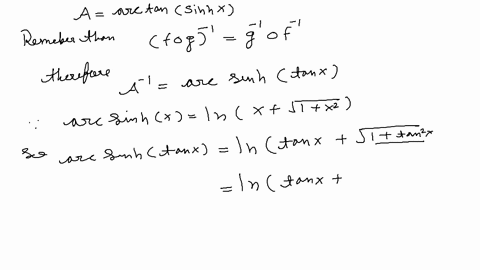 A = arc tan (sinhx)
Remeber than (fog)⁻¹ = g⁻¹ o f⁻¹
therefore A⁻¹ = arc sinh (tanx)
∵ arc sinh (x) = ln ( x + √1 + x² )
So arc sinh (tanx) = ln ( tanx + √1 + tan²x
= ln ( tanx +